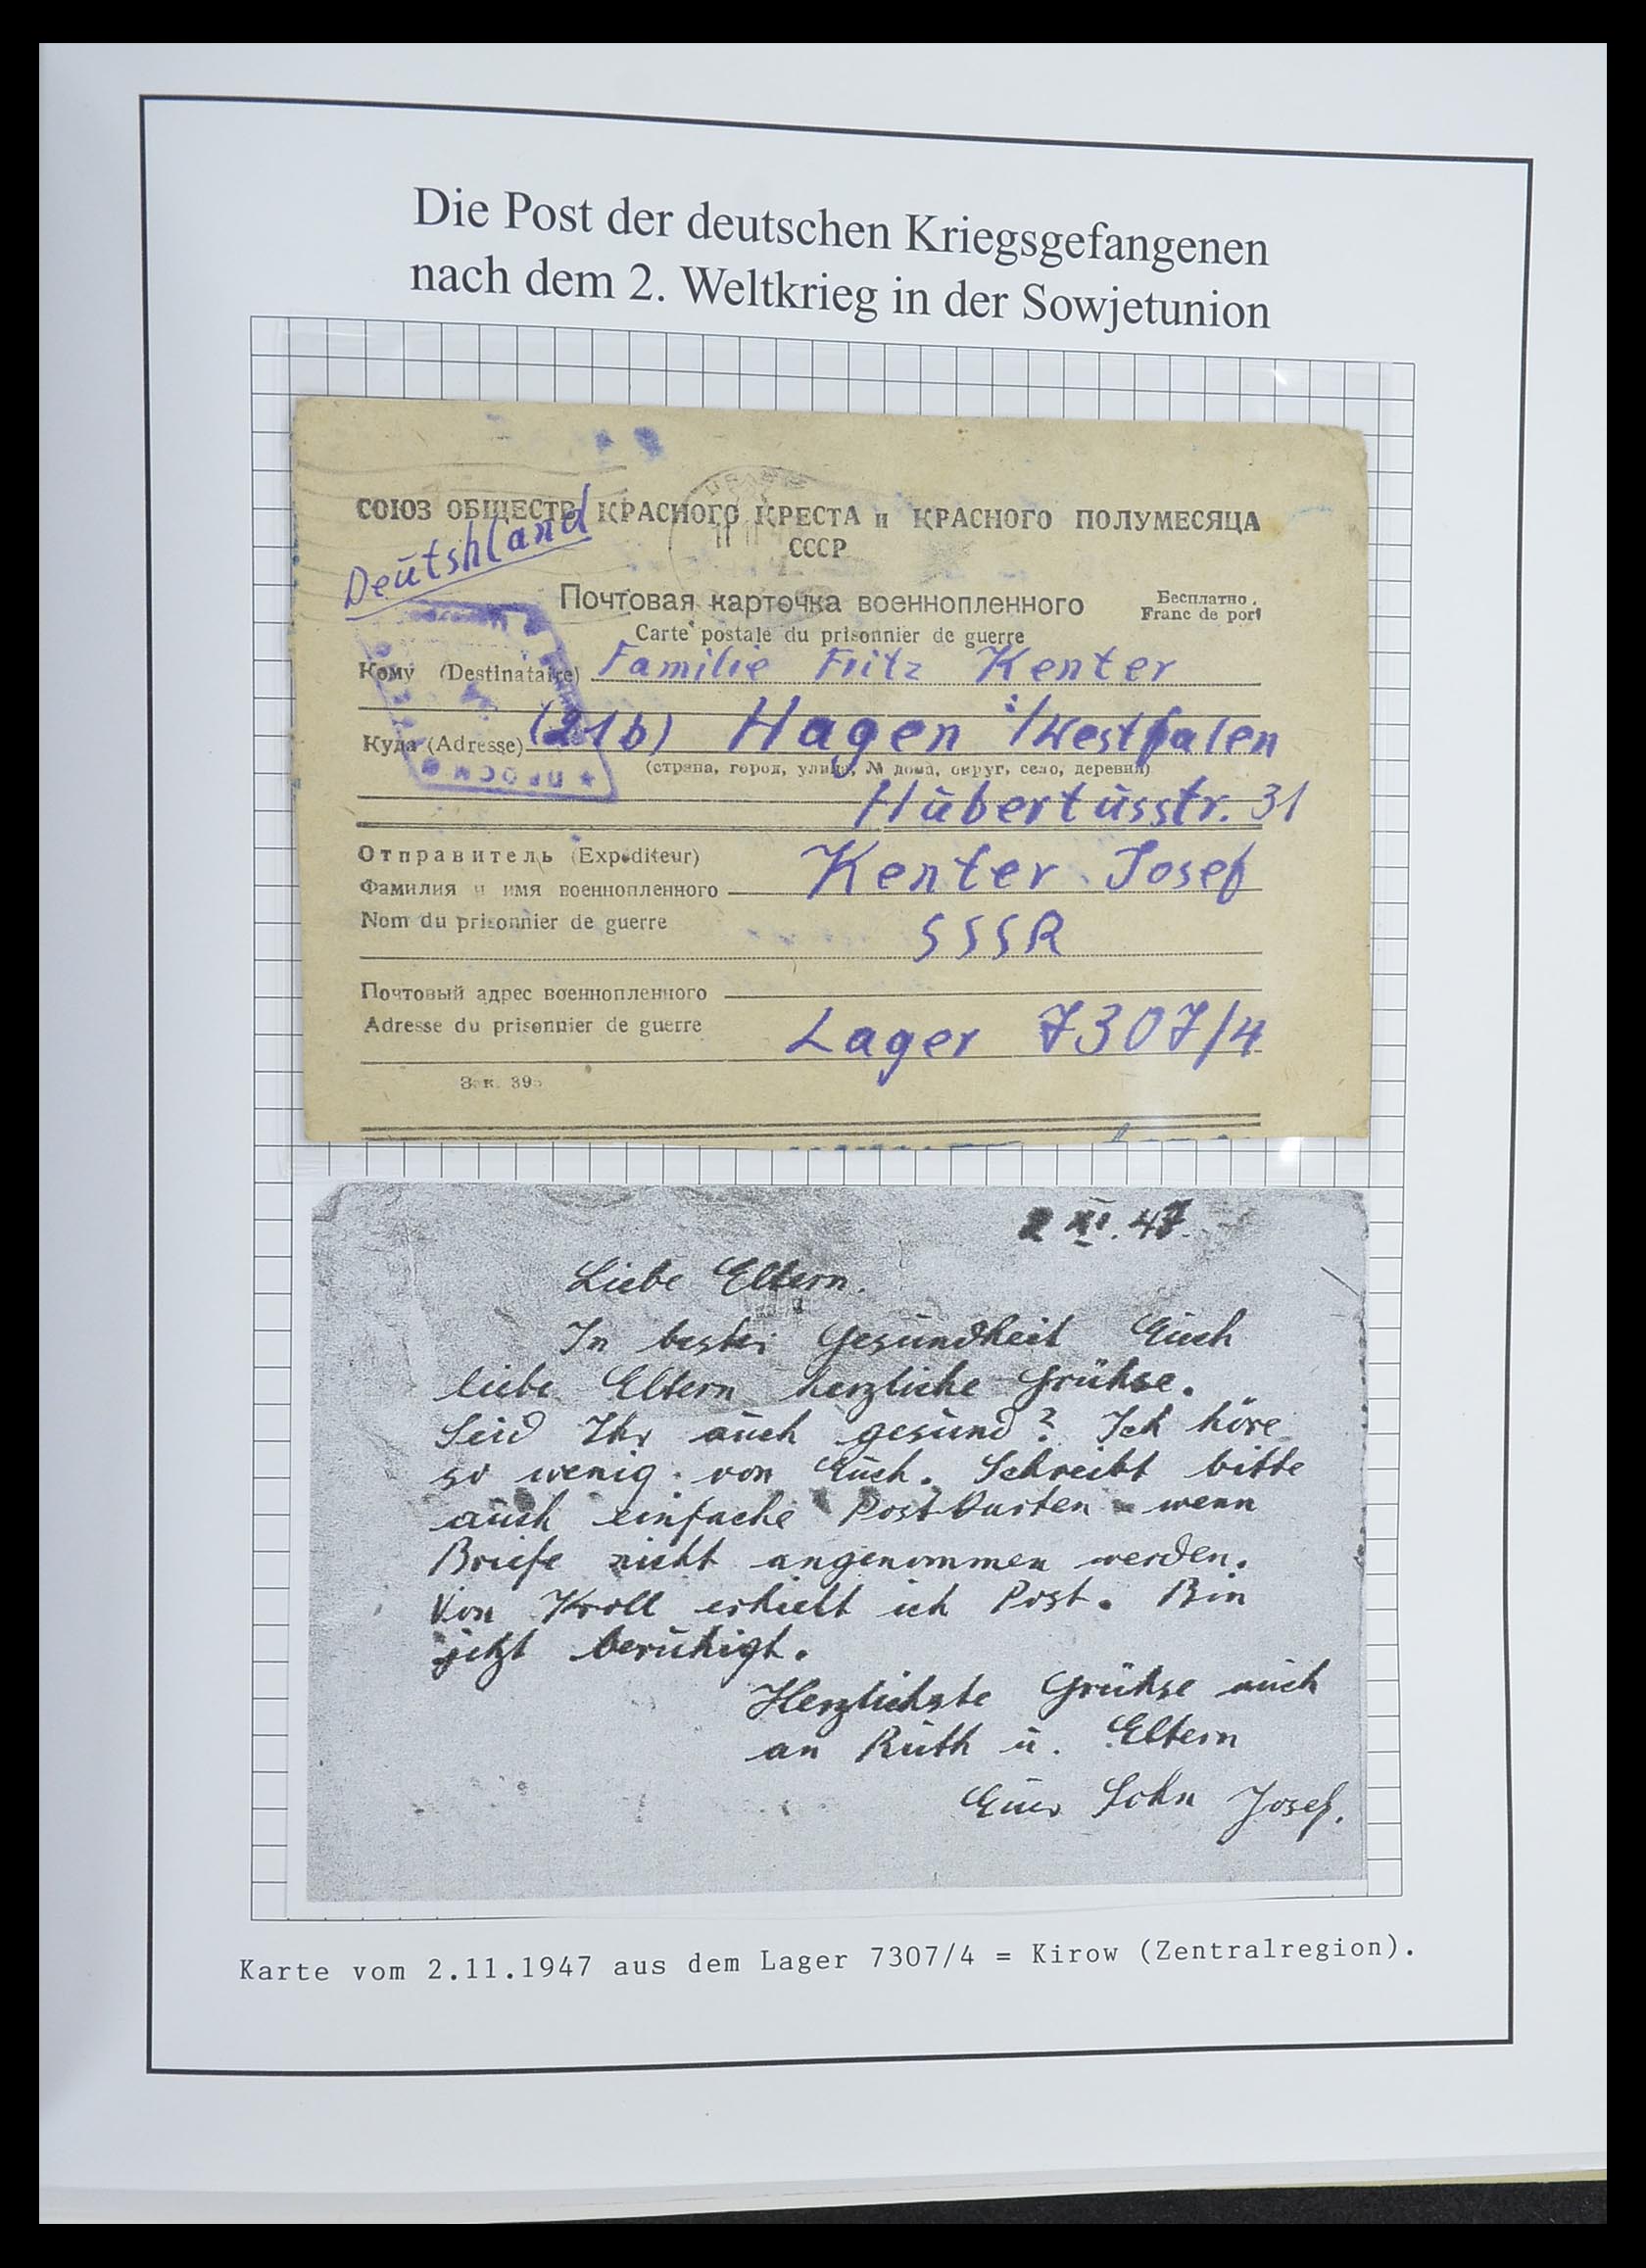 Die Post der deutschen Kriegsgefangenen
nach dem 2. Weltkrieg in der Sowjetunion
СОЮЗ ОБЩЕСТВ КРАСНОГО КРЕСТА и КРАСНОГО ПОЛУМЕСЯЦА
СССР
Deutshland
Почтовая карточка военнопленного
Бесплатно
Franc de port
Carte postale du prisonnier de guerre
Кому (Destinataire) Familie Fritz Kenter
Куда (Adresse) (21b) Hagen i/Westfalen
(страна, город, улица, № дома, округ, село, деревня)
Hubertusstr. 31
Отправитель (Expéditeur)
Фамилия и имя военнопленного Kenter Josef
Nom du prisonnier de guerre
SSSR
Почтовый адрес военнопленного
Adresse du prisonnier de guerre
Lager 7307/4
2 XI. 47.
Liebe Eltern.
In bester Gesundheit Euch
liebe Eltern herzliche Grühse.
Seid Ihr auch gesund? Ich höre
so wenig von Euch. Schreibt bitte
auch einfache Postkarten wenn
Briefe nicht angenommen werden.
Von Kroll erhielt ich Post. Bin
jetzt beruhigt.
Herzlichste Grühse auch
an Ruth u. Eltern
Euer Sohn Josef.
Karte vom 2.11.1947 aus dem Lager 7307/4 = Kirow (Zentralregion).